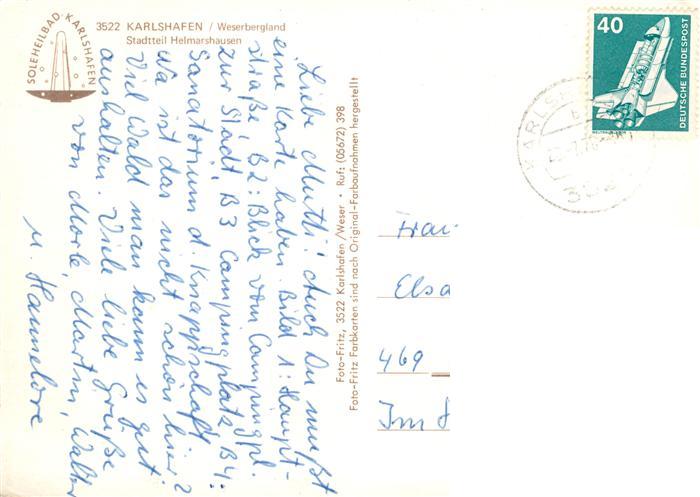 SOLEHEILBAD KARLSHAFEN
3522 KARLSHAFEN / Weserbergland
Stadtteil Helmarshausen
Liebe Mutti! Auch Du mußt
eine Karte haben. Bild 1: Haupt-
straße B2: Blick vom Campingpl.
zur Stadt B3 Campingplatz B4:
Sanatorium d. Knappschaft
Na ist das nicht schön hier?
Viel Wald man kann es gut
aushalten. Viele liebe Grüße
von Merle, Martin, Walter
u. Hannelore
Foto-Fritz, 3522 Karlshafen/Weser • Ruf: (05672) 398
Foto-Fritz Farbkarten sind nach Original-Farbaufnahmen hergestellt
40
DEUTSCHE BUNDESPOST
Frau
Elsa
469
Im